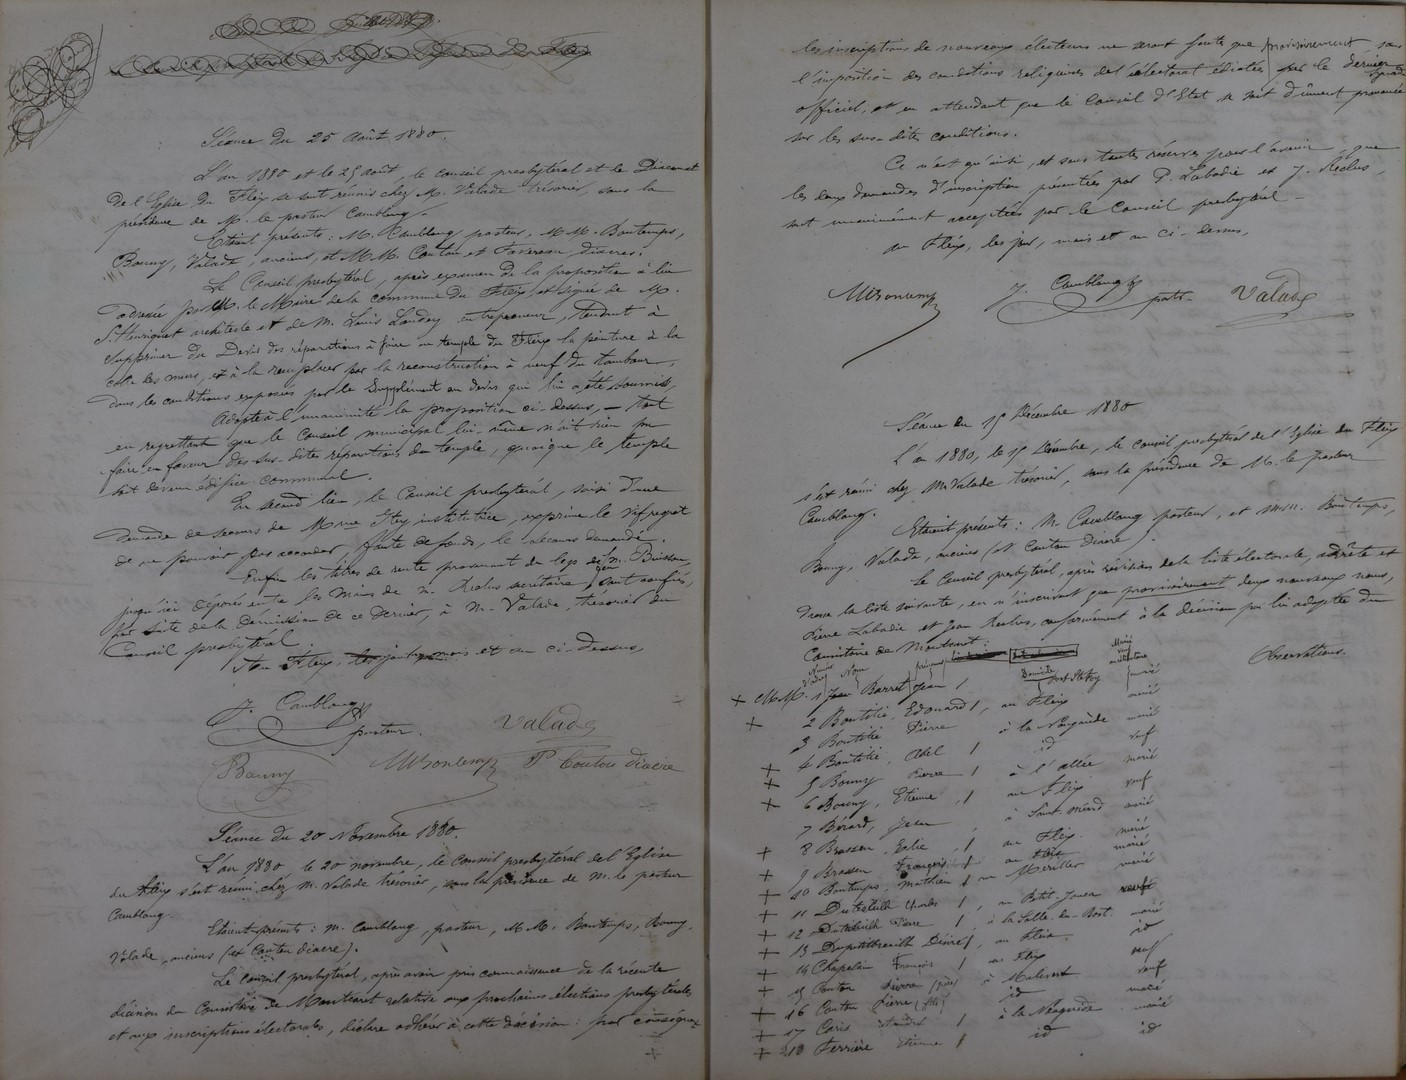 Séance du 25 Août 1880.
L'an 1880 et le 25 août, le conseil presbytéral et le Diaconat
de l'Eglise du Fleix se sont réunis chez M. Valade trésorier, sous la
présidence de M. le pasteur Camblong.
Etaient présents : M. Camblong pasteur, M.M. Bontemps,
Bouny, Valade, anciens, et M.M. Couton et Favereau, diacres.
Le Conseil presbytéral, après examen de la proposition à lui
adressée par M. le Maire de la commune du Fleix, et signée de M.
architecte et de M. Louis Landry entrepreneur, tendant à
supprimer du Devis des réparations à faire au temple du Fleix la peinture à la
colle les murs, et à la remplacer par la reconstruction à neuf du tambour,
dans les conditions exposées par le Supplément au devis qui lui a été soumis,
Adopte à l'unanimité la proposition ci-dessus, — tout
en regrettant que le Conseil municipal lui-même n'ait rien pu
faire en faveur des sus-dites réparations du temple, quoique le temple
soit devenu édifice communal.
En second lieu, le Conseil presbytéral, saisi d'une
demande de secours de Mme institutrice, exprime le vif regret
de ne pouvoir pas accorder, faute de fonds, le secours demandé.
Enfin les titres de rente provenant du legs de feu M. Buisson,
jusqu'ici déposés entre les mains de M. Reclus secrétaire, sont confiés,
par suite de la démission de ce dernier, à M. Valade, trésorier du
Conseil presbytéral.
Au Fleix, les jour, mois et an ci-dessus
J. Camblong
pasteur.
Valade
Bouny
MBontemps
P Couton diacre
Séance du 20 Novembre 1880.
L'an 1880 le 20 novembre, le Conseil presbytéral de l'Eglise
du Fleix s'est réuni chez M. Valade trésorier, sous la présidence de M. le pasteur
Camblong.
Etaient présents : M. Camblong, pasteur, M.M. Bontemps, Bouny,
Valade, anciens (et Couton diacre).
Le Conseil presbytéral, après avoir pris connaissance de la récente
décision du Consistoire de Montcaret relative aux prochaines élections presbytérales
et aux inscriptions électorales, déclare adhérer à cette décision : par conséquent
les inscriptions de nouveaux électeurs ne seront faite que provisoirement sous
l'imposition des conditions religieuses de l'électorat édictées par le dernier
officiel, et en attendant que le Conseil d'Etat se soit dûment prononcé
sur les sus-dites conditions.
Ce n'est qu'ainsi, et sous toutes réserves pour l'avenir, que
les deux demandes d'inscription présentées par P. Labadie et J. Reclus,
sont unanimement acceptées par le Conseil presbytéral.
Au Fleix, les jour, mois et an ci-dessus,
MBontemps
J. Camblong
past.
Valade
Séance du 15 Décembre 1880
L'an 1880, le 15 Décembre, le conseil presbytéral de l'Eglise du Fleix
s'est réuni chez M. Valade trésorier, sous la présidence de M. le pasteur
Camblong.
Etaient présents : M. Camblong pasteur, et M.M. Bontemps,
Bouny, Valade, anciens (et Couton Diacre).
Le Conseil presbytéral, après révision de la liste électorale, arrête et
dresse la liste suivante, en n'inscrivant que provisoirement deux nouveaux noms,
Pierre Labadie et Jean Reclus, conformément à la décision par lui adoptée du
Consistoire de Montcaret :
Noms
prénoms
Domicile
Observations.
+ MM. 1 Jean Barret Jean / Port Ste Foy marié
+ 2 Boutilié, Edouard /, au Fleix marié
3 Boutilié Pierre à la Nougarède marié
+ 4 Boutilié, Abel / id veuf
+ 5 Bouny Pierre / à l'allée marié
+ 6 Bouny, Etienne, / au Fleix veuf
7 Bérard, Jean, à Saint-Méard marié
+ 8 Brassen, Elie, / au Fleix. marié
+ 9 Brassen François, / au Fleix marié
+ 10 Bontemps, Mathieu / au marié
+ 11 Duteuilh /, au Petit-Jouan veuf
+ 12 Duteuilh Pierre / à la Salle-du-Bost. marié
+ 13 Duputbreuilh Pierre /, au Fleix. id
+ 14 Chapelain François / au Fleix veuf
+ 15 Couton Pierre (père) / à veuf
+ 16 Couton Pierre (fils) / id marié
+ 17 Caris André / à la Nougarède marié
+ 18 Ferrière Etienne / id id